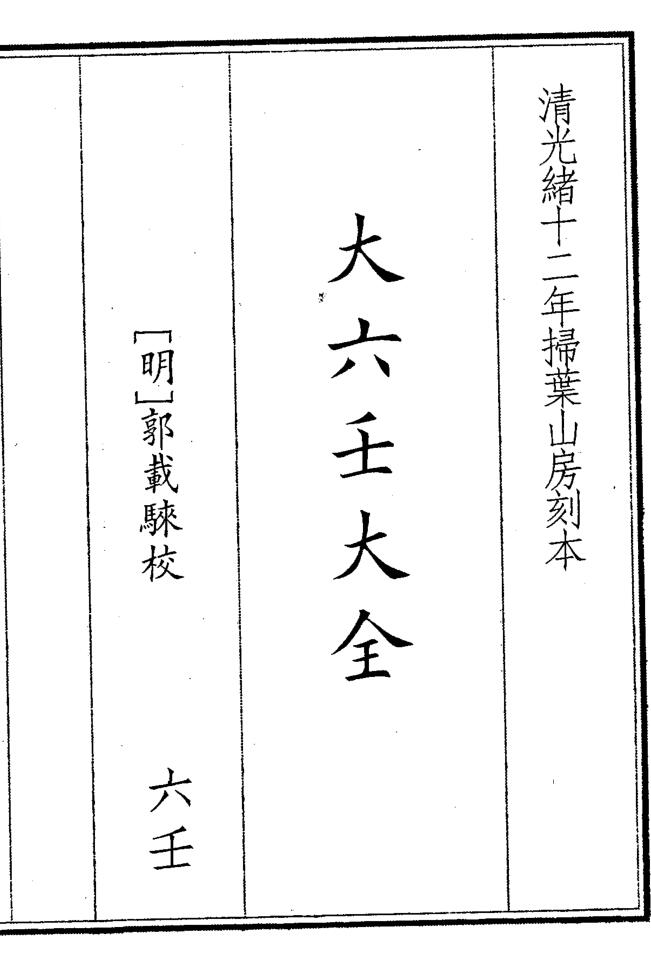 清光緒十二年掃葉山房刻本
大六壬大全
[明]郭載騋校
六壬